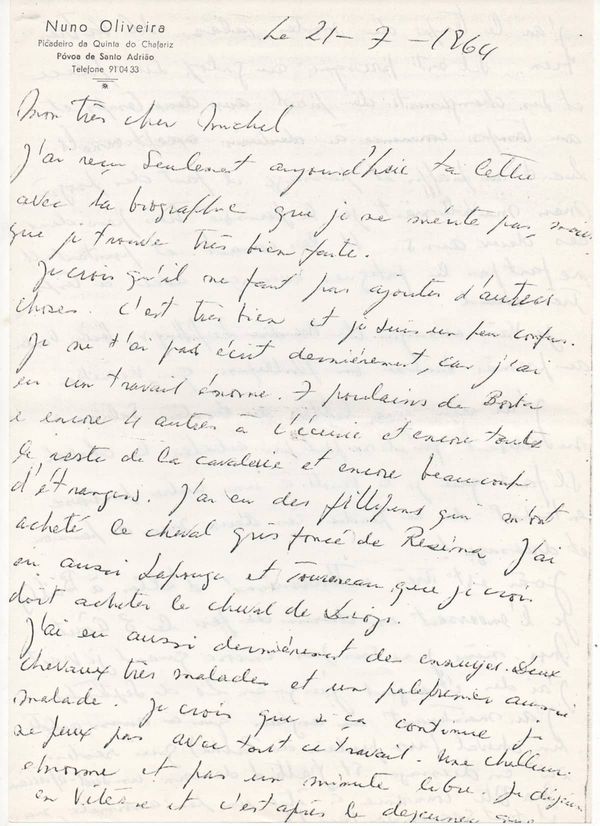 Nuno Oliveira
Picadeiro da Quinta do Chafariz
Póvoa de Santo Adrião
Telefone 91 04 33
Le 21 - 7 - 1964
Mon très cher Michel
J'ai reçu seulement aujourd'hui ta lettre
avec ta biographie que je ne mérite pas, mais
que je trouve très bien faite.
Je crois qu'il ne faut pas ajouter d'autres
choses. C'est très bien et je suis un peu confus.
Je ne t'ai pas écrit dernièrement, car j'ai
eu un travail énorme. 7 poulains de
e encore 4 autres à l'écurie et encore toute
le reste de la cavalerie et encore beaucoup
d'étrangers. J'ai eu des qui m'ont
acheté le cheval gris foncé de J'ai
eu aussi et que je crois
doit acheter le cheval de
J'ai eu aussi dernièrement des ennuyes. Deux
chevaux très malades et un palefrenier aussi
malade. Je crois que si ça continue je
ne peux pas avec tout ce travail. Une chaleur
enorme et pas un minute libre. Je
en vitesse et c'est après le dejeuner que